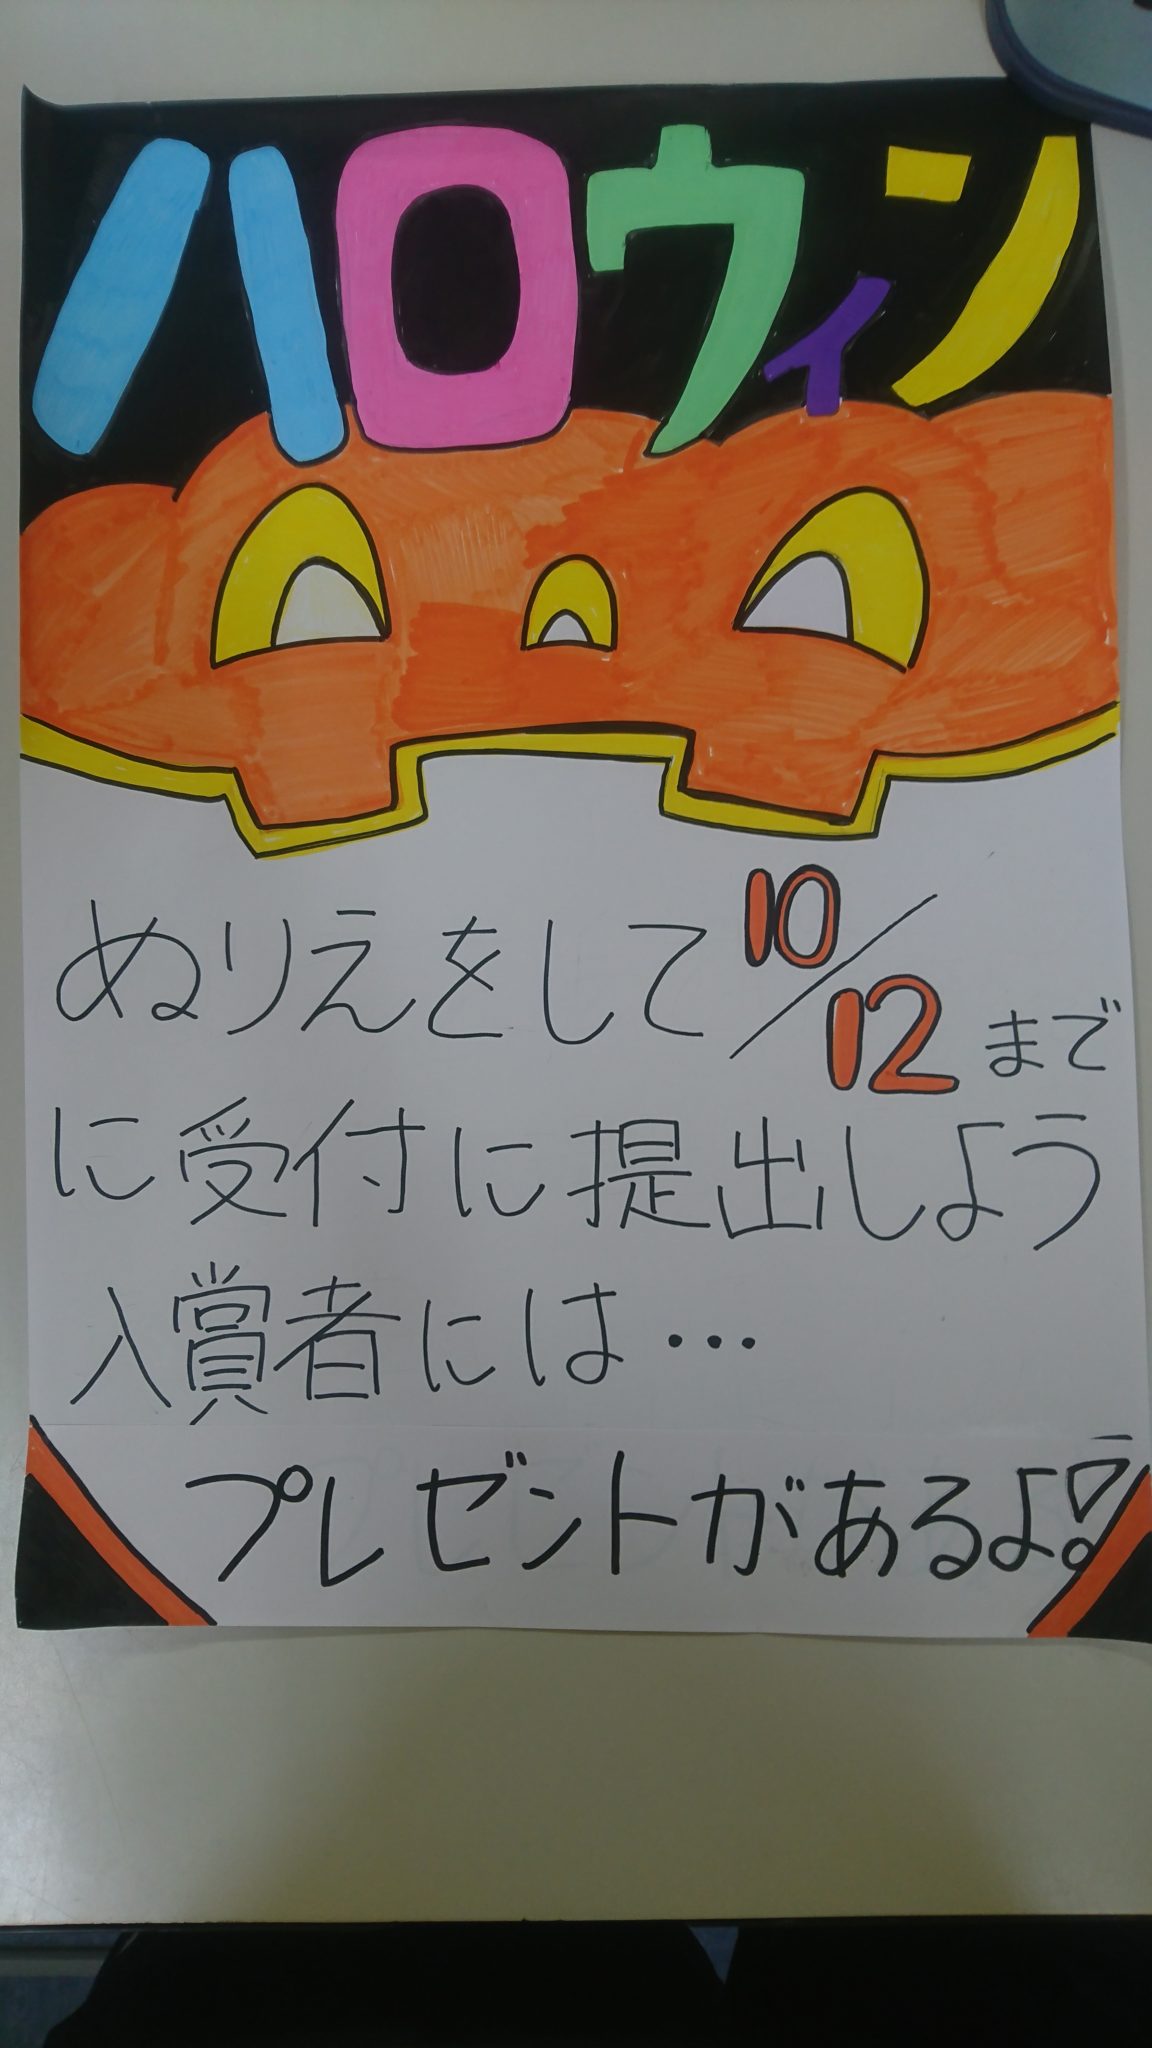 ハロウィン
ぬりえをして10/12まで
に受付に提出しよう
入賞者には…
プレゼントがあるよ!